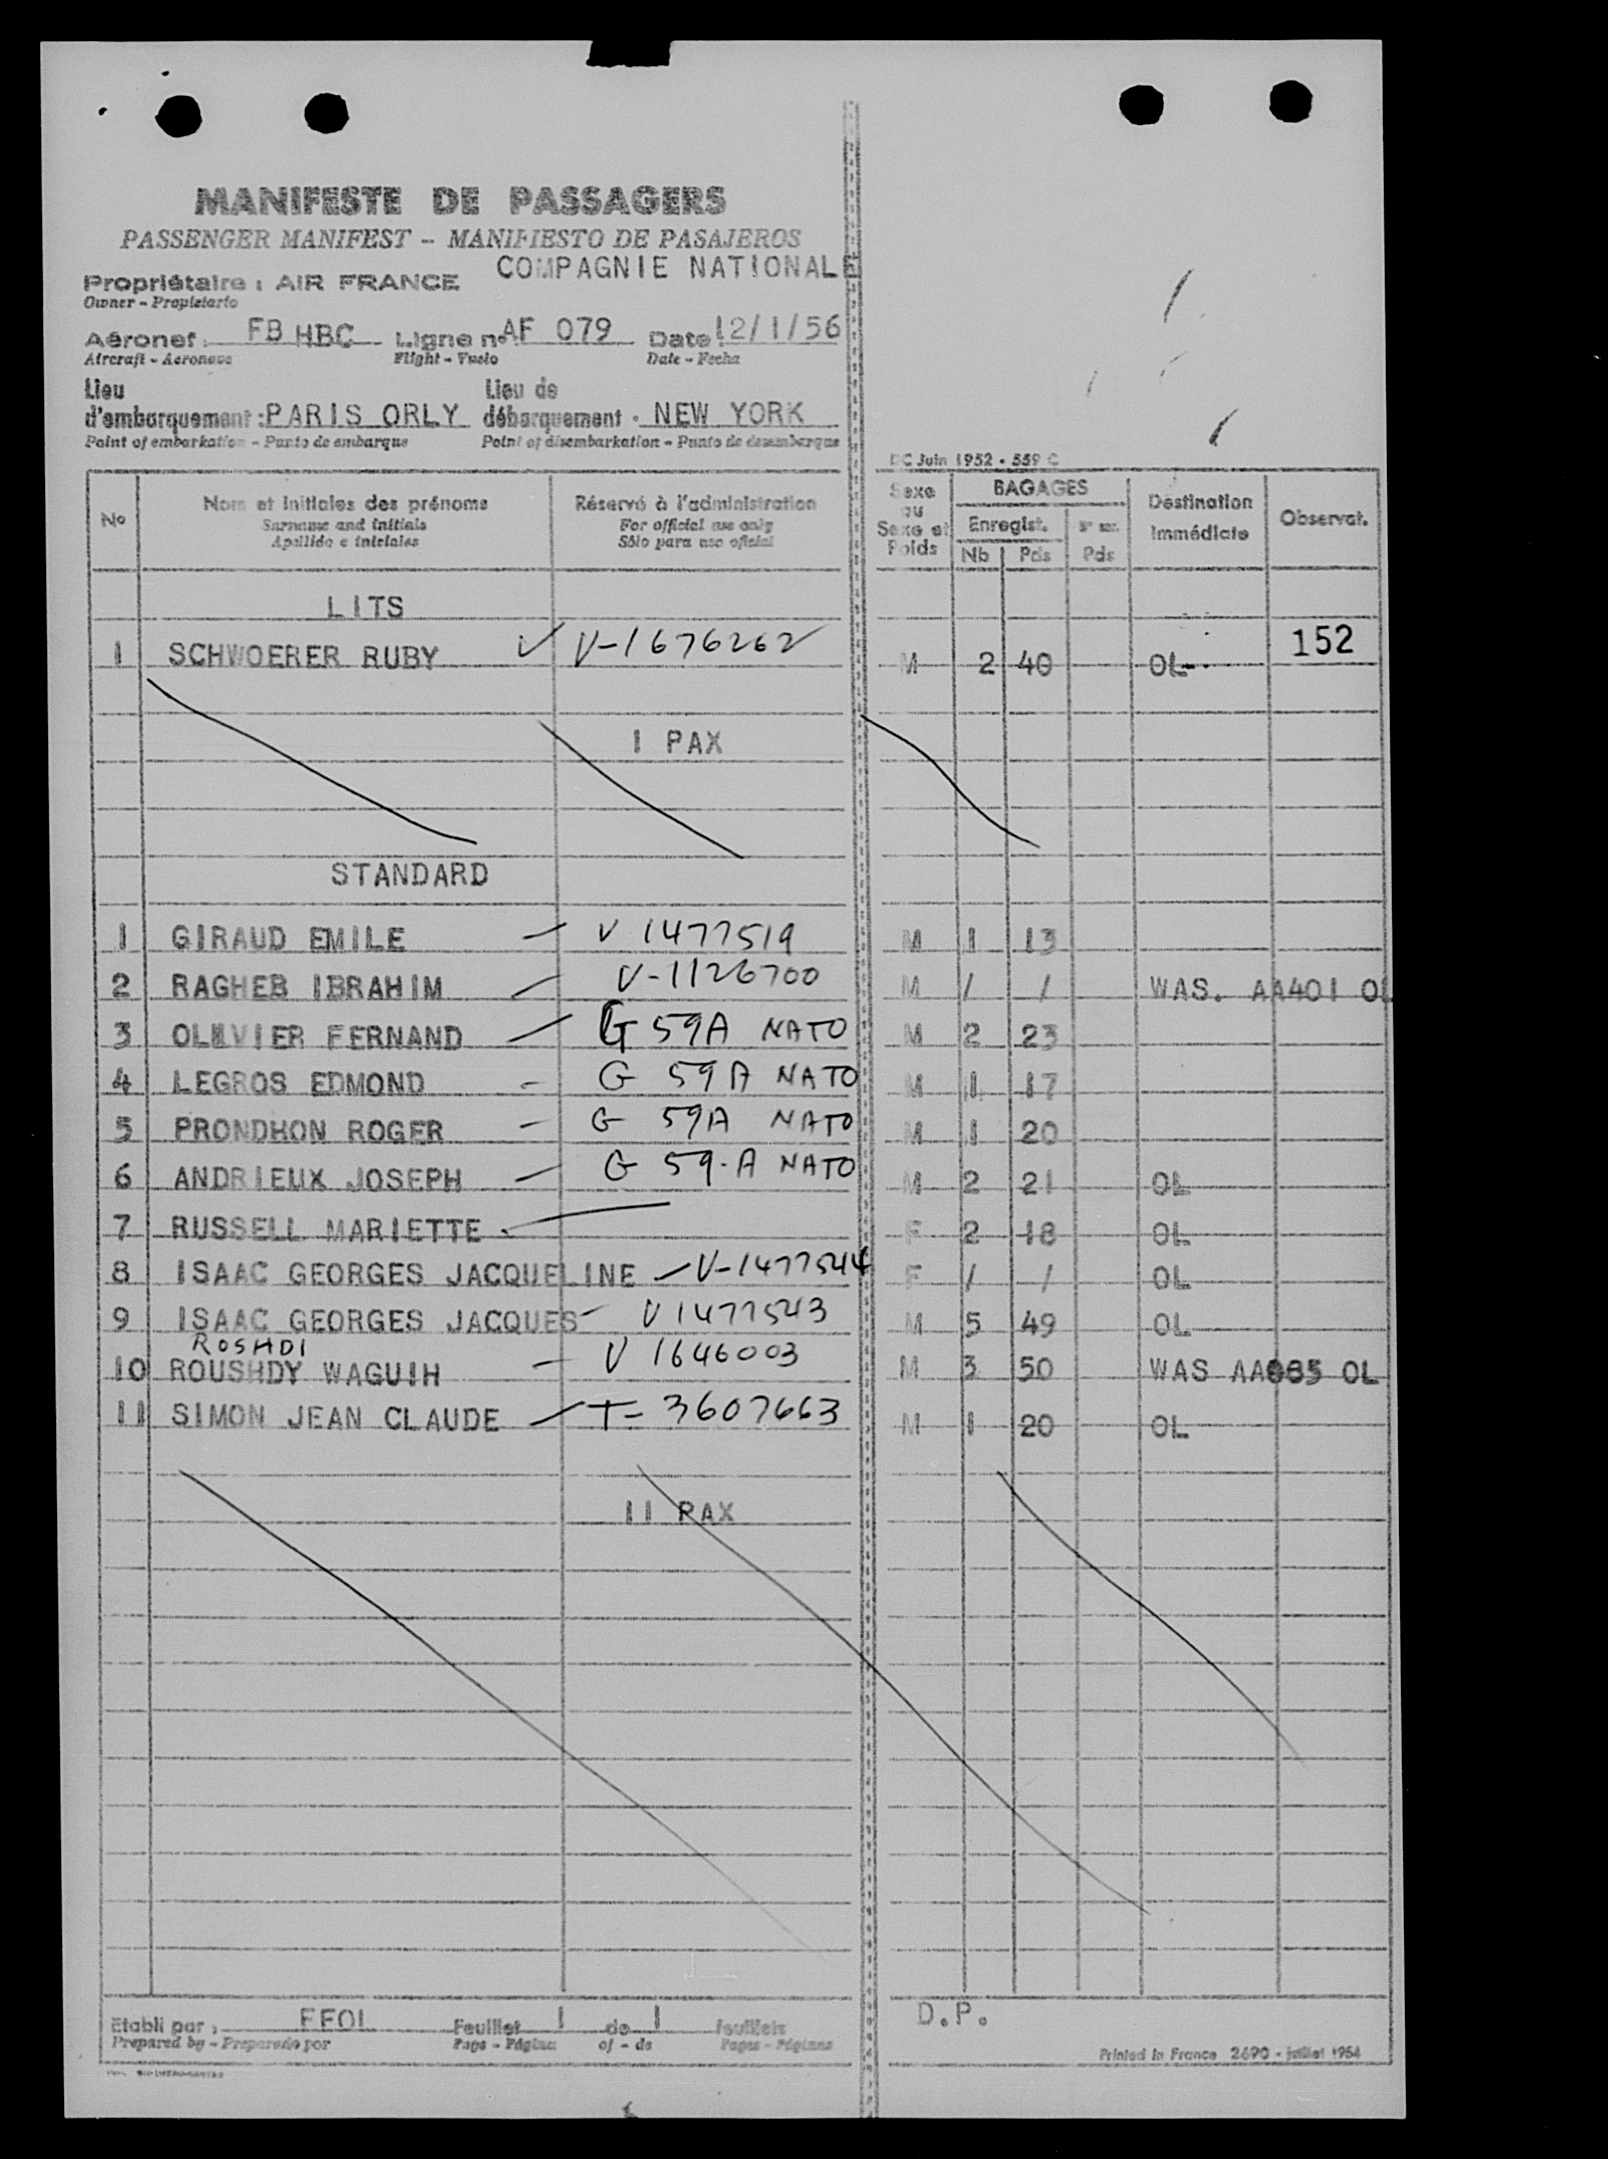 MANIFESTE DE PASSAGERS
PASSENGER MANIFEST - MANIFIESTO DE PASAJEROS
COMPAGNIE NATIONALE
Propriétaire : AIR FRANCE
Owner - Propietario
Aéronef : FB HBC Ligne n° AF 079 Date : 12/1/56
Aircraft - Aeronave Flight - Vuelo Date - Fecha
Lieu Lieu de
d'embarquement : PARIS ORLY débarquement - NEW YORK
Point of embarkation - Punto de embarque Point of disembarkation - Punto de desembarque
DC Juin 1952 - 559 C
No Nom et initiales des prénoms Réservé à l'administration Sexe ou Sexe et Poids BAGAGES Destination Immédiate Observat.
Surname and initials For official use only Enregist.
Apellido e iniciales Sólo para uso oficial Nb Pds Pds
LITS
1 SCHWOERER RUBY ✓ V-1676262 M 2 40 OL-- 152
1 PAX
STANDARD
1 GIRAUD EMILE — V 1477519 M 1 13
2 RAGHEB IBRAHIM — V-1126700 M / / WAS. AA401 OL
3 OLIVIER FERNAND — G 59A NATO M 2 23
4 LEGROS EDMOND - G 59 A NATO M 1 17
5 PRONDHON ROGER - G 59A NATO M 1 20
6 ANDRIEUX JOSEPH — G 59-A NATO M 2 21 OL
7 RUSSELL MARIETTE — F 2 18 OL
8 ISAAC GEORGES JACQUELINE — V-1477544 F / / OL
9 ISAAC GEORGES JACQUES - V 1477543 M 5 49 OL
ROSHDI
10 ROUSHDY WAGUIH — V 1646003 M 3 50 WAS OL
11 SIMON JEAN CLAUDE — T- 3607663 M 1 20 OL
11 PAX
Etabli par : EFOL Feuillet 1 de 1 feuillets D.P.
Prepared by - Preparado por Page - Página of - de Pages - Páginas
Printed in France 2690 - juillet 1954